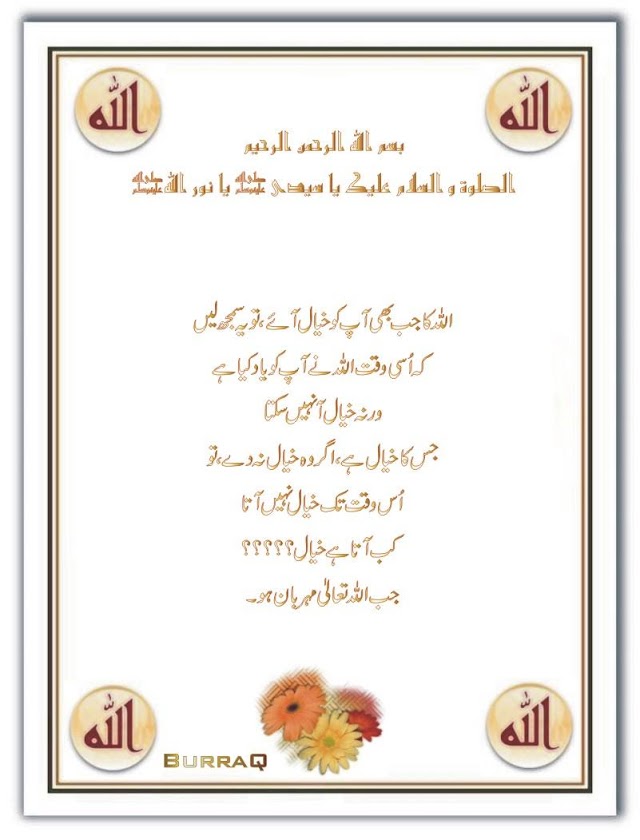 الله
الله
بسم الله الرحمن الرحيم
الصلوة و السلام عليك يا سيدى ﷺ يا نور الله ﷺ
اللہ کا جب بھی آپ کو خیال آئے، تو یہ سمجھ لیں
کہ اُسی وقت اللہ نے آپ کو یاد کیا ہے
ورنہ خیال آ نہیں سکتا
جس کا خیال ہے، اگر وہ خیال نہ دے، تو
اُس وقت تک خیال نہیں آتا
کب آتا ہے خیال؟؟؟؟؟
جب اللہ تعالیٰ مہربان ہو۔
الله
الله
BURRAQ